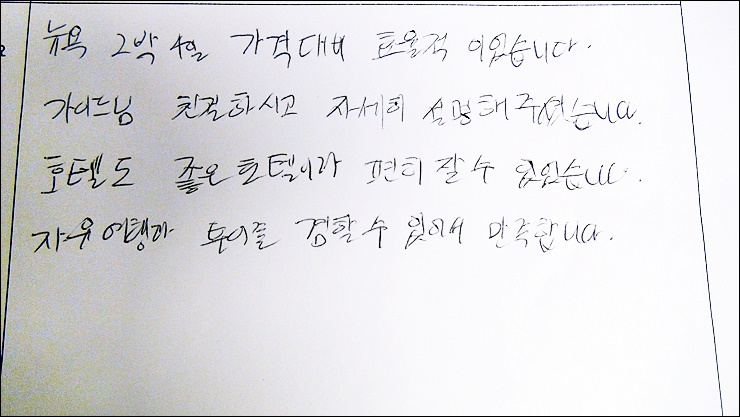 뉴욕 2박 4일 가격대비 효율적 이었습니다.
가이드님 친절하시고 자세히 설명해주셨습니다.
호텔도 좋은 호텔이라 편히 잘 수 있었습니다.
자유여행과 투어를 겸할 수 있어서 만족합니다.